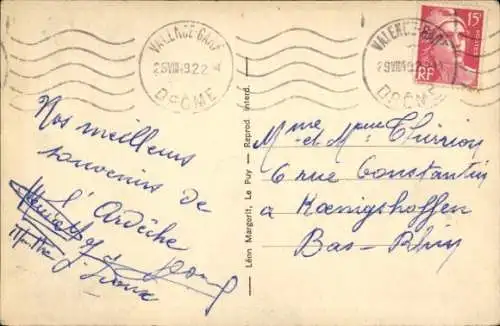 VALENCE-GARE
DRÔME
VALENCE-GARE
DRÔME
15F
RF
Nos meilleurs
souvenirs de
l'Ardèche
Léon Margerit, Le Puy — Reprod. interd.
Mme et Mme Thirion
6 rue Constantin
à Kœnigshoffen
Bas-Rhin